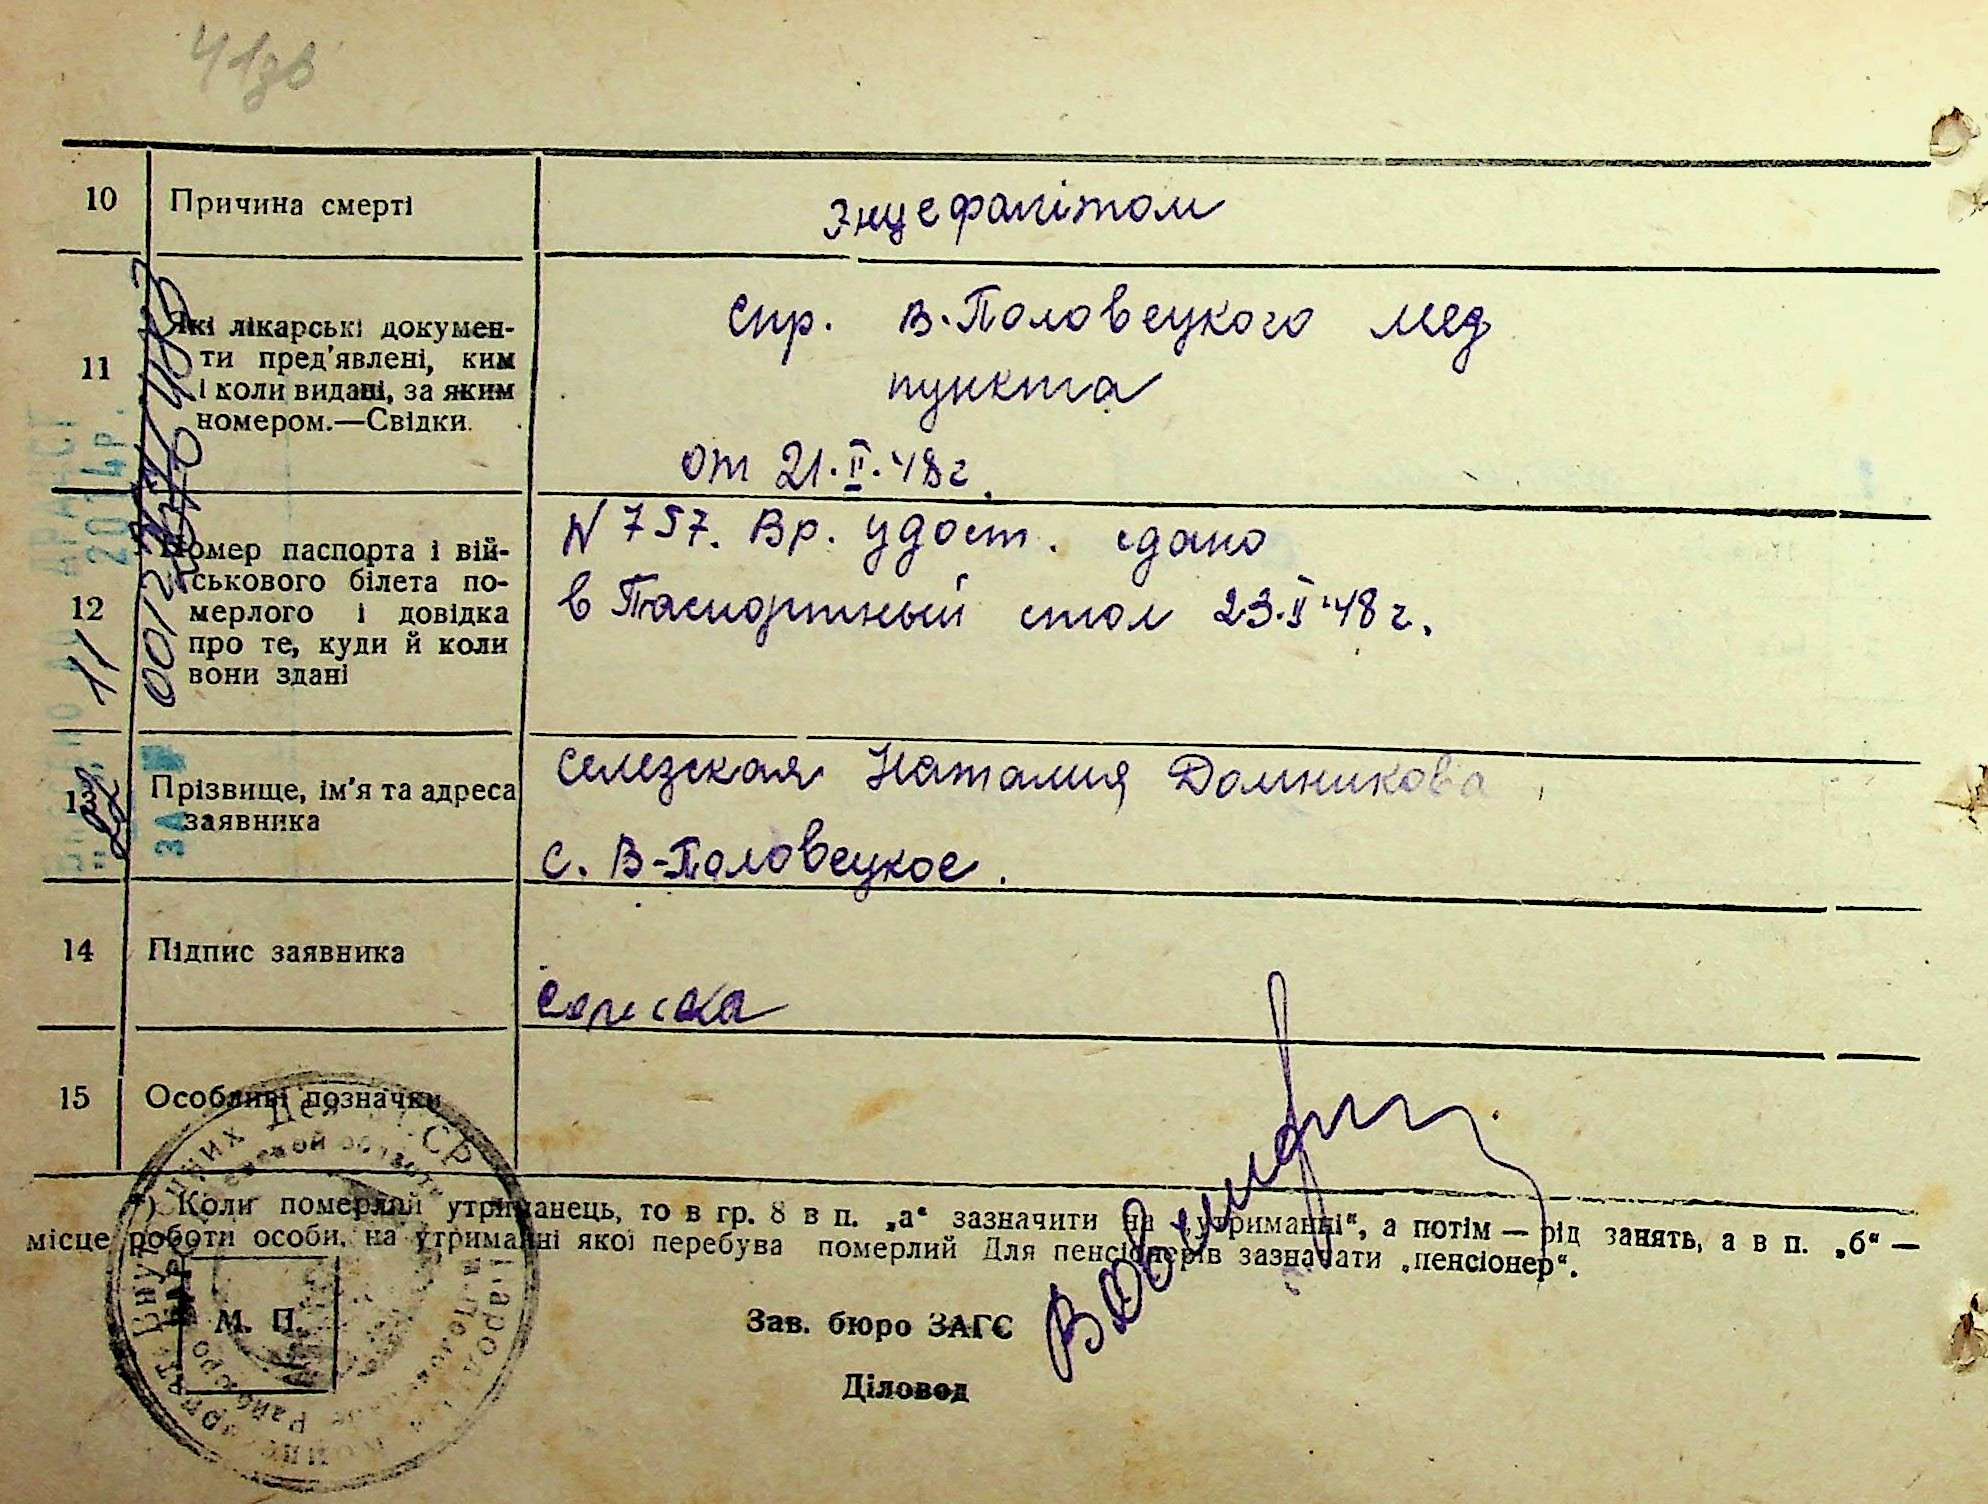 41зв
10 Причина смерті
энцефалітом
11 Які лікарські докумен-
ти пред'явлені, ким
і коли видані, за яким
номером.—Свідки.
Спр. В-Половецкого мед
пункта
от 21.II.48г.
12 Номер паспорта і вій-
ськового білета по-
мерлого і довідка
про те, куди й коли
вони здані
N 757. Вр. удост. сдано
в Паспортный стол 23.II.48г.
13 Прізвище, ім'я та адреса
заявника
Наталия Домникова
с. В-Половецкое.
14 Підпис заявника
15 Особливі позначки
*) Коли померлий утриманець, то в гр. 8 в п. „а“ зазначити на „утриманні“, а потім — рід занять, а в п. „б“ —
місце роботи особи, на утриманні якої перебува померлий Для пенсіонерів зазначати „пенсіонер“.
М. П.
Зав. бюро ЗАГС
Діловод